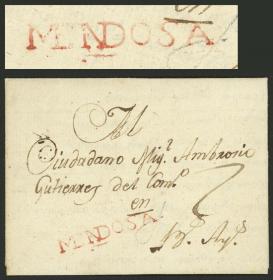 en
MENDOSA
Al
Ciudadano Mig.l Ambrosio
Gutierres del Cam.o
en
MENDOSA
B.s Ay.s